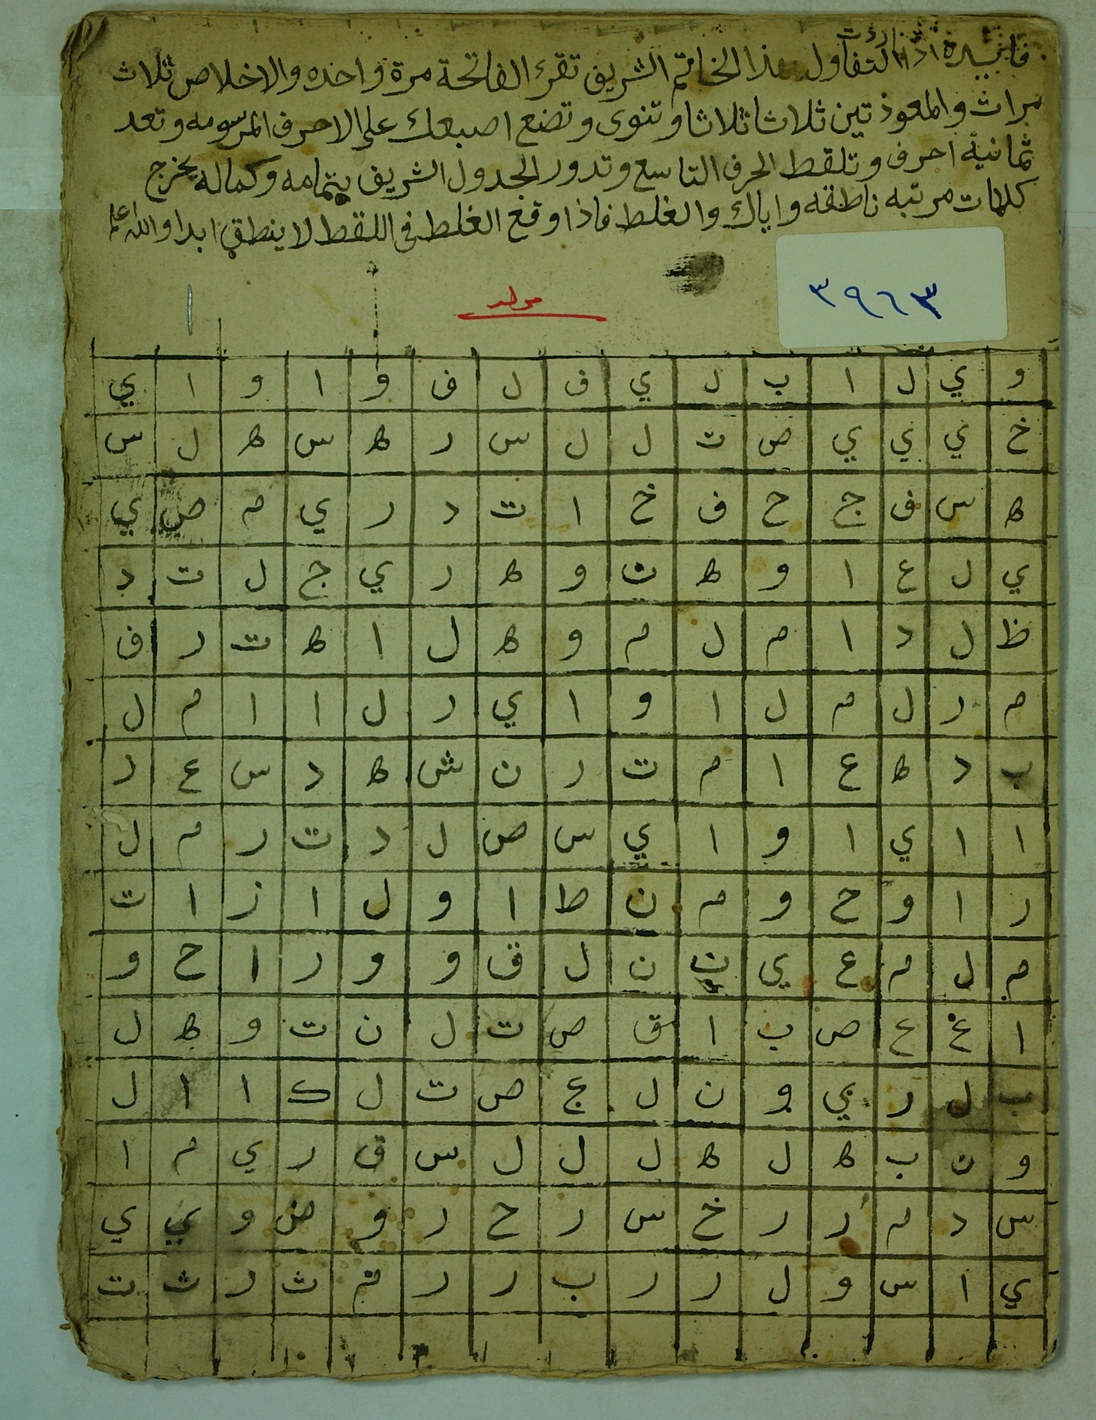 فايده اذا اردت التفاول بهذا الخاتم الشريف تقرء الفاتحة مرة واحده والاخلاص ثلاث
مرات والمعوذتين ثلاثا ثلاثا وتنوى وتضع اصبعك على الاحرف المرسومه وتعد
ثمانية احرف وتلقط الحرف التاسع وتدور الجدول الشريف بتمامه وكماله يخرج
كلمات مرتبه ناطقه واياك والغلط فاذا وقع الغلط فى اللقط لا ينطق ابدا والله
٣٩٦٣
و ي ل ا ب ل ي ف ل ف و ا و ا ي
خ ي ي ي ص ت ل ل س ر ه س ه ل س
ه س ف ج ح ف خ ا ت د ر ي م ص ي
ي ل ع ا و ه ت و ه ر ي ج ل ت د
ظ ل د ا م ل م و ه ل ا ه ت ر ف
م ر ل م ل ا و ا ي ر ل ا ا م ل
ب د ه ع ا م ت ر ن ش ه د س ع ر
ا ا ي ا و ا ي س ص ل د ت ر م ل
ر ا و ح و م ن ط ا و ل ا ز ا ت
م ل م ع ي ن ن ل ق و و ر ا ح و
ا غ ع ص ب ا ق ص ت ل ن ت و ه ل
ب ل ر ي و ن ل ج ص ت ل ك ا ا ل
و ن ب ه ل ه ل ل ل س ق ر ي م ا
س د م ر ر خ س ر ح ر و ض و ي ي
ي ا س و ل ر ر ب ر ر م ث ر ث ت